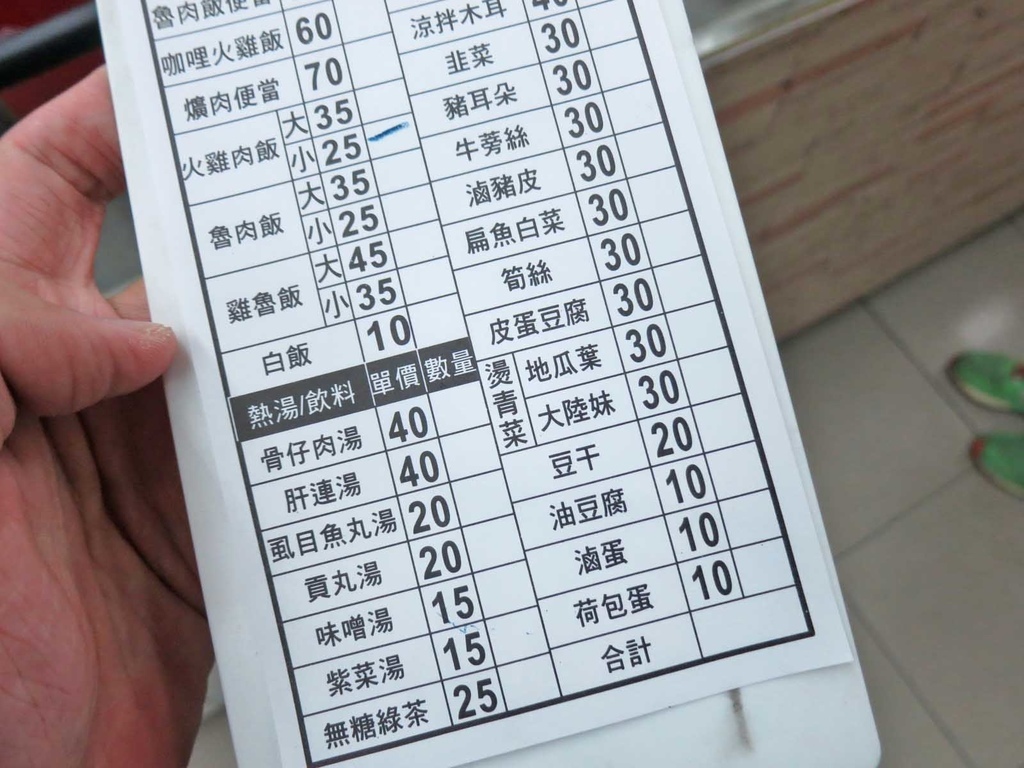 魯肉飯便當
咖哩火雞飯 60
爌肉便當 70
火雞肉飯 大 35
小 25
魯肉飯 大 35
小 25
雞魯飯 大 45
小 35
白飯 10
熱湯/飲料 單價 數量
骨仔肉湯 40
肝連湯 40
虱目魚丸湯 20
貢丸湯 20
味噌湯 15
紫菜湯 15
無糖綠茶 25
涼拌木耳 40
韭菜 30
豬耳朵 30
牛蒡絲 30
滷豬皮 30
扁魚白菜 30
筍絲 30
皮蛋豆腐 30
燙青菜 地瓜葉 30
大陸妹 30
豆干 20
油豆腐 10
滷蛋 10
荷包蛋 10
合計